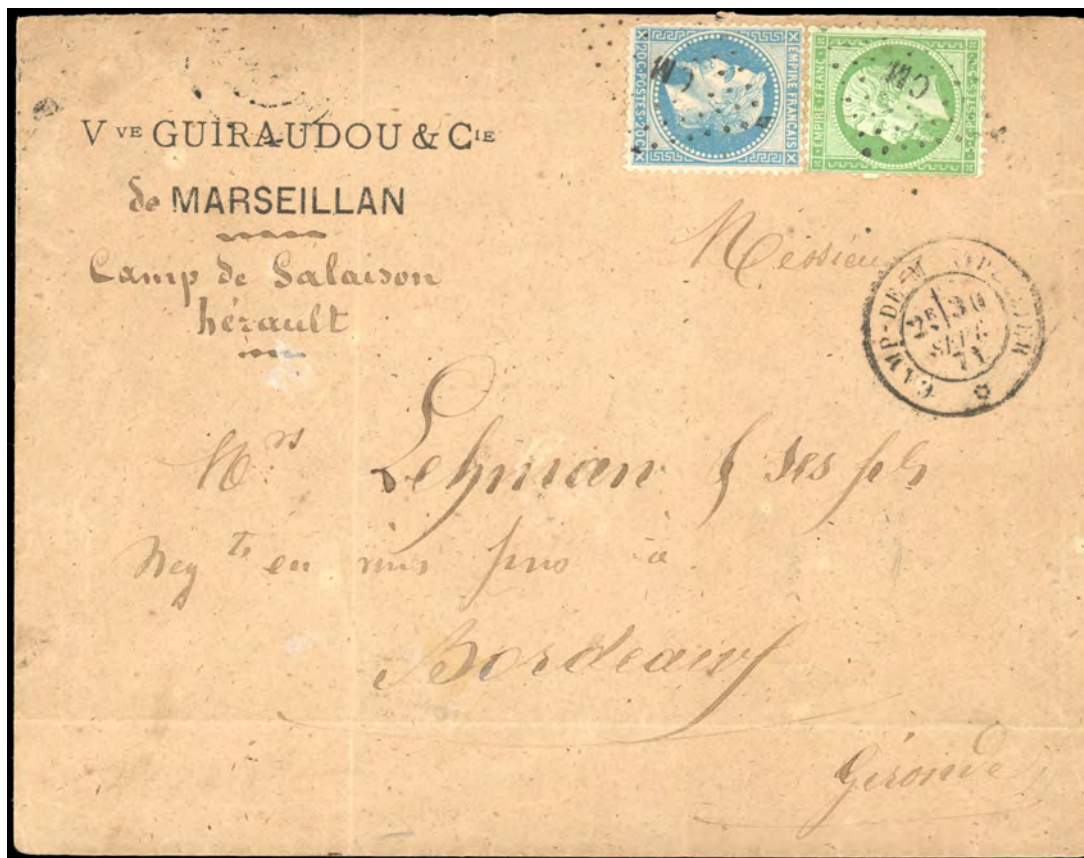 V VE GUIRAUDOU & CIE
de MARSEILLAN
Camp de Salaison
hérault
EMPIRE FRANÇAIS
20C·POSTES·20C
CM
EMPIRE FRANC
CM
Messieu
CAMP-DE-M PELLIER
2E 30
SEPT
71
Mrs Lehman & ses fils
Negts en vins fins à
Bordeaux
Gironde